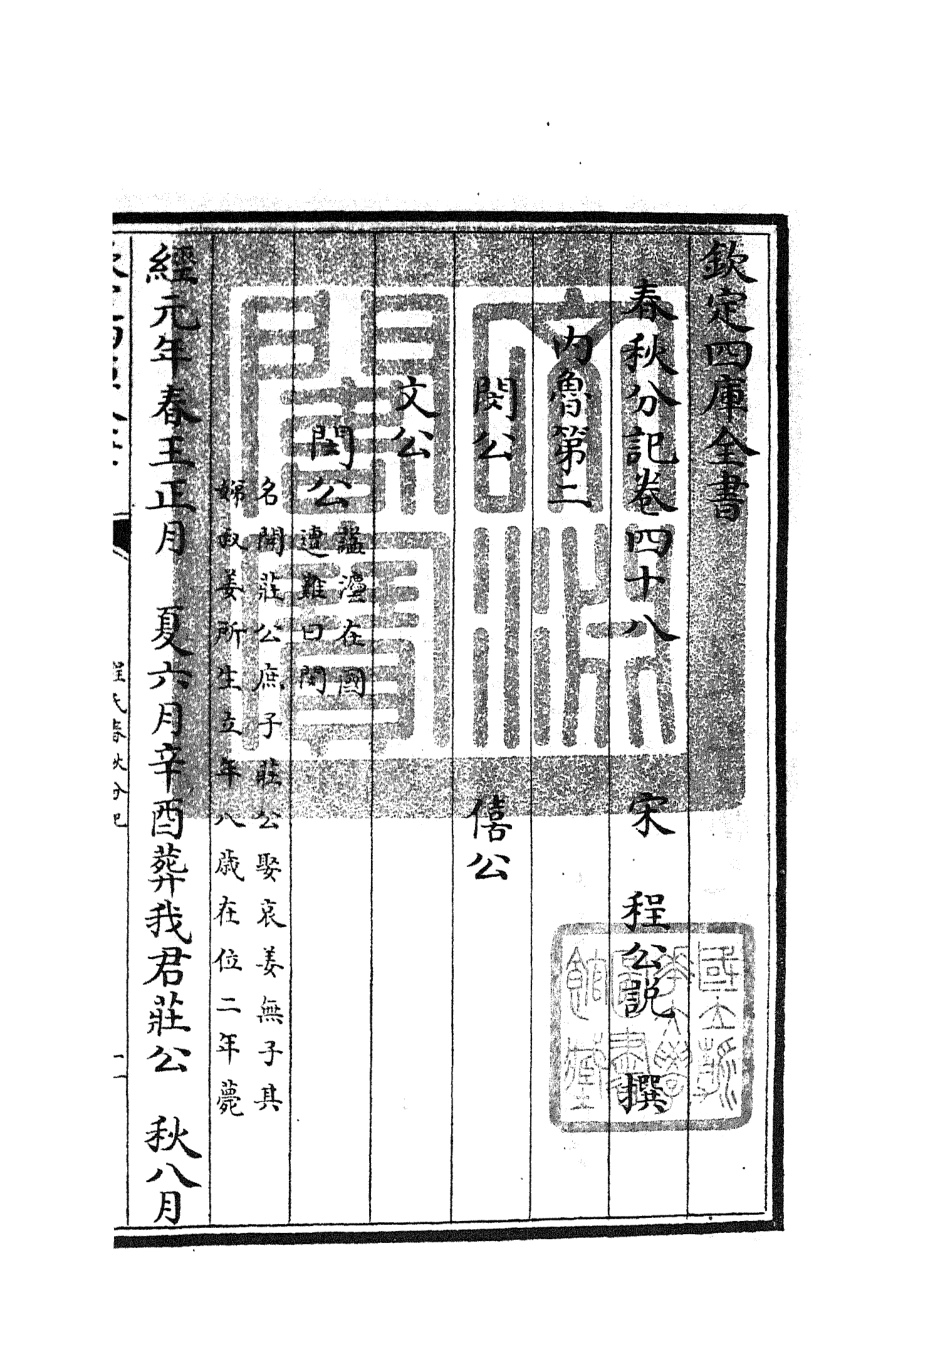 欽定四庫全書
春秋分記卷四十八 宋 程公說 撰
內魯第二
閔公 僖公
文公
閔公 諡灋在國
遭難曰閔
名開莊公庶子莊公娶哀姜無子其
娣叔姜所生立年八歲在位二年薨
經元年春王正月 夏六月辛酉葬我君莊公 秋八月
程氏春秋分記